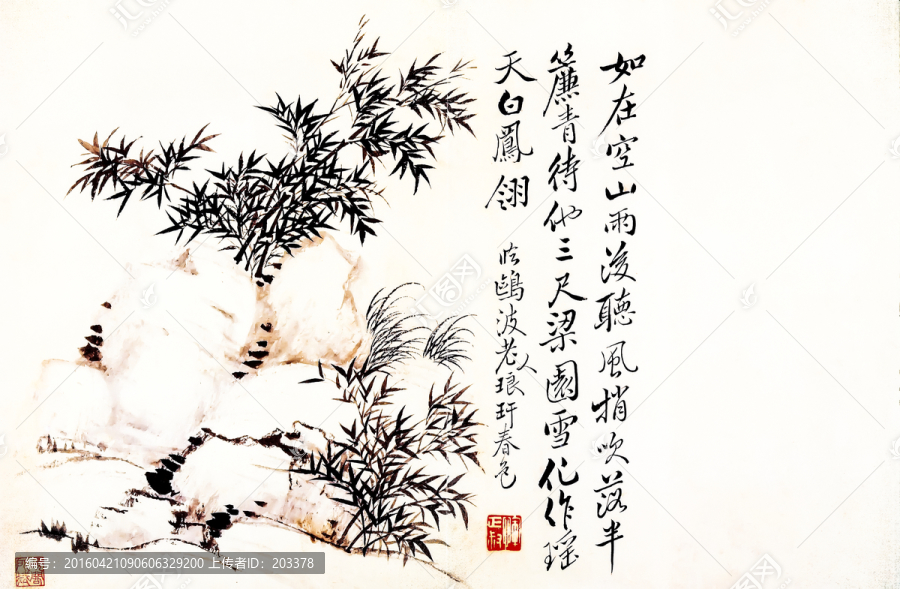 如在空山雨後聽風梢吹落半
簾青待他三尺梁園雪化作瑶
天白鳳翎
临鷗波老人琅玕春色
编号：20160421090606329200 上传者ID：203378